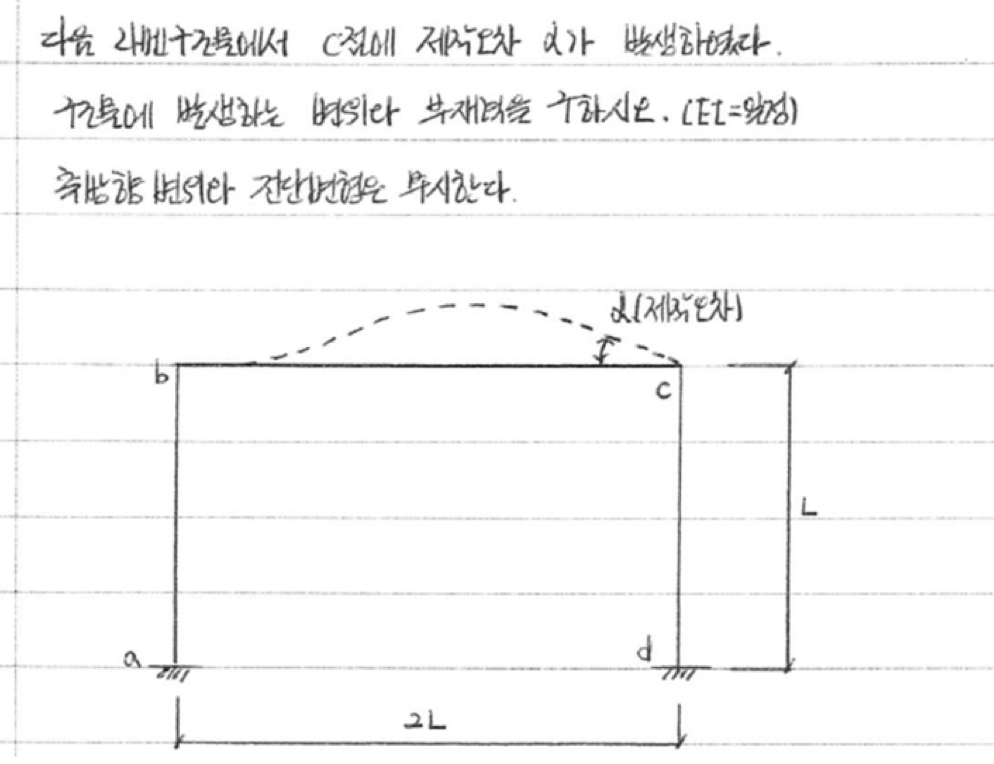 다음 라멘구조물에서 C점에 제작오차 α가 발생하였다.
구조물에 발생하는 변위와 부재력을 구하시오. (EI=일정)
축방향 변위와 전단변형은 무시한다.
α(제작오차)
b
c
L
a
d
2L